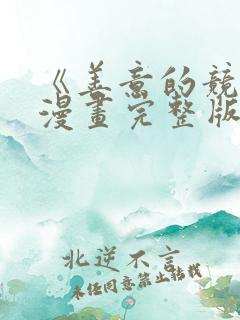 《善意的競
漫畫完整版
北逆不言
未任同意禁止轉載